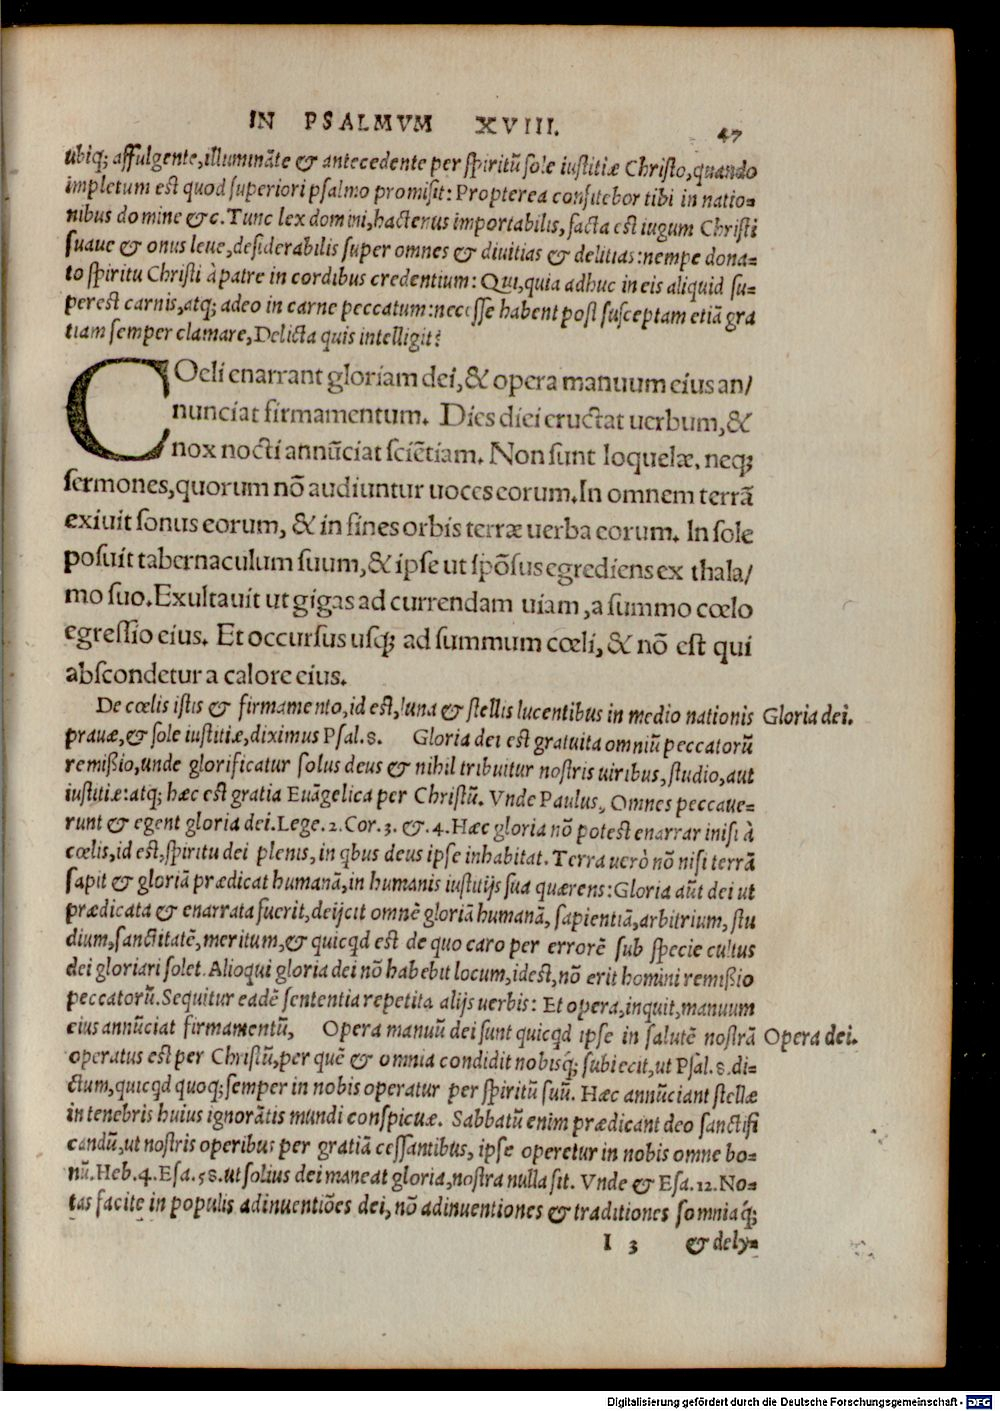 IN PSALMVM XVIII.
47
ubiq; affulgente, illuminãte & antecedente per spiritũ sole iustitiæ Christo, quando
impletum est quod superiori psalmo promisit: Propterea confitebor tibi in natio-
nibus domine &c. Tunc lex domini, hactenus importabilis, facta est iugum Christi
suaue & onus leue, desiderabilis super omnes & diuitias & delitias: nempe dona-
to spiritu Christi à patre in cordibus credentium: Qui, quia adhuc in eis aliquid su-
perest carnis, atq; adeo in carne peccatum: necesse habent post susceptam etiã gra
tiam semper clamare, Delicta quis intelligit?
COeli enarrant gloriam dei, & opera manuum eius an/
nunciat firmamentum. Dies diei eructat uerbum, &
nox nocti annũciat sciẽtiam. Non sunt loquelæ, neq;
sermones, quorum nõ audiuntur uoces eorum. In omnem terrã
exiuit sonus eorum, & in fines orbis terræ uerba eorum. In sole
posuit tabernaculum suum, & ipse ut spõsus egrediens ex thala/
mo suo. Exultauit ut gigas ad currendam uiam, a summo cœlo
egressio eius. Et occursus usq; ad summum cœli, & nõ est qui
abscondetur a calore eius.
De cœlis istis & firmamento, id est, luna & stellis lucentibus in medio nationis Gloria dei.
prauæ, & sole iustitiæ, diximus Psal. 8. Gloria dei est gratuita omniũ peccatorũ
remißio, unde glorificatur solus deus & nihil tribuitur nostris uiribus, studio, aut
iustitiæ: atq; hæc est gratia Euãgelica per Christũ. Vnde Paulus, Omnes peccaue-
runt & egent gloria dei. Lege. 2. Cor. 3. &. 4. Hæc gloria nõ potest enarrari nisi à
cœlis, id est, spiritu dei plenis, in qbus deus ipse inhabitat. Terra uerò nõ nisi terrã
sapit & gloriã prædicat humanã, in humanis iustitijs sua quærens: Gloria aũt dei ut
prædicata & enarrata fuerit, deijcit omnẽ gloriã humanã, sapientiã, arbitrium, stu
dium, sanctitatẽ, meritum, & quicqd est de quo caro per errorẽ sub specie cultus
dei gloriari solet. Alioqui gloria dei nõ habebit locum, idest, nõ erit homini remißio
peccatorũ. Sequitur eadẽ sententia repetita alijs uerbis: Et opera, inquit, manuum
eius annũciat firmamentũ, Opera manuũ dei sunt quicqd ipse in salutẽ nostrã Opera dei.
operatus est per Christũ, per quẽ & omnia condidit nobisq́; subiecit, ut Psal. 8. di-
ctum, quicqd quoq; semper in nobis operatur per spiritũ suũ. Hæc annũciant stellæ
in tenebris huius ignorãtis mundi conspicuæ. Sabbatũ enim prædicant deo sanctifi
candũ, ut nostris operibus per gratiã cessantibus, ipse operetur in nobis omne bo-
nũ. Heb. 4. Esa. 58. ut solius dei maneat gloria, nostra nulla sit. Vnde & Esa. 12. No-
tas facite in populis adinuentiões dei, nõ adinuentiones & traditiones somniaq́;
I 3 & dely-
Digitalisierung gefördert durch die Deutsche Forschungsgemeinschaft - DFG